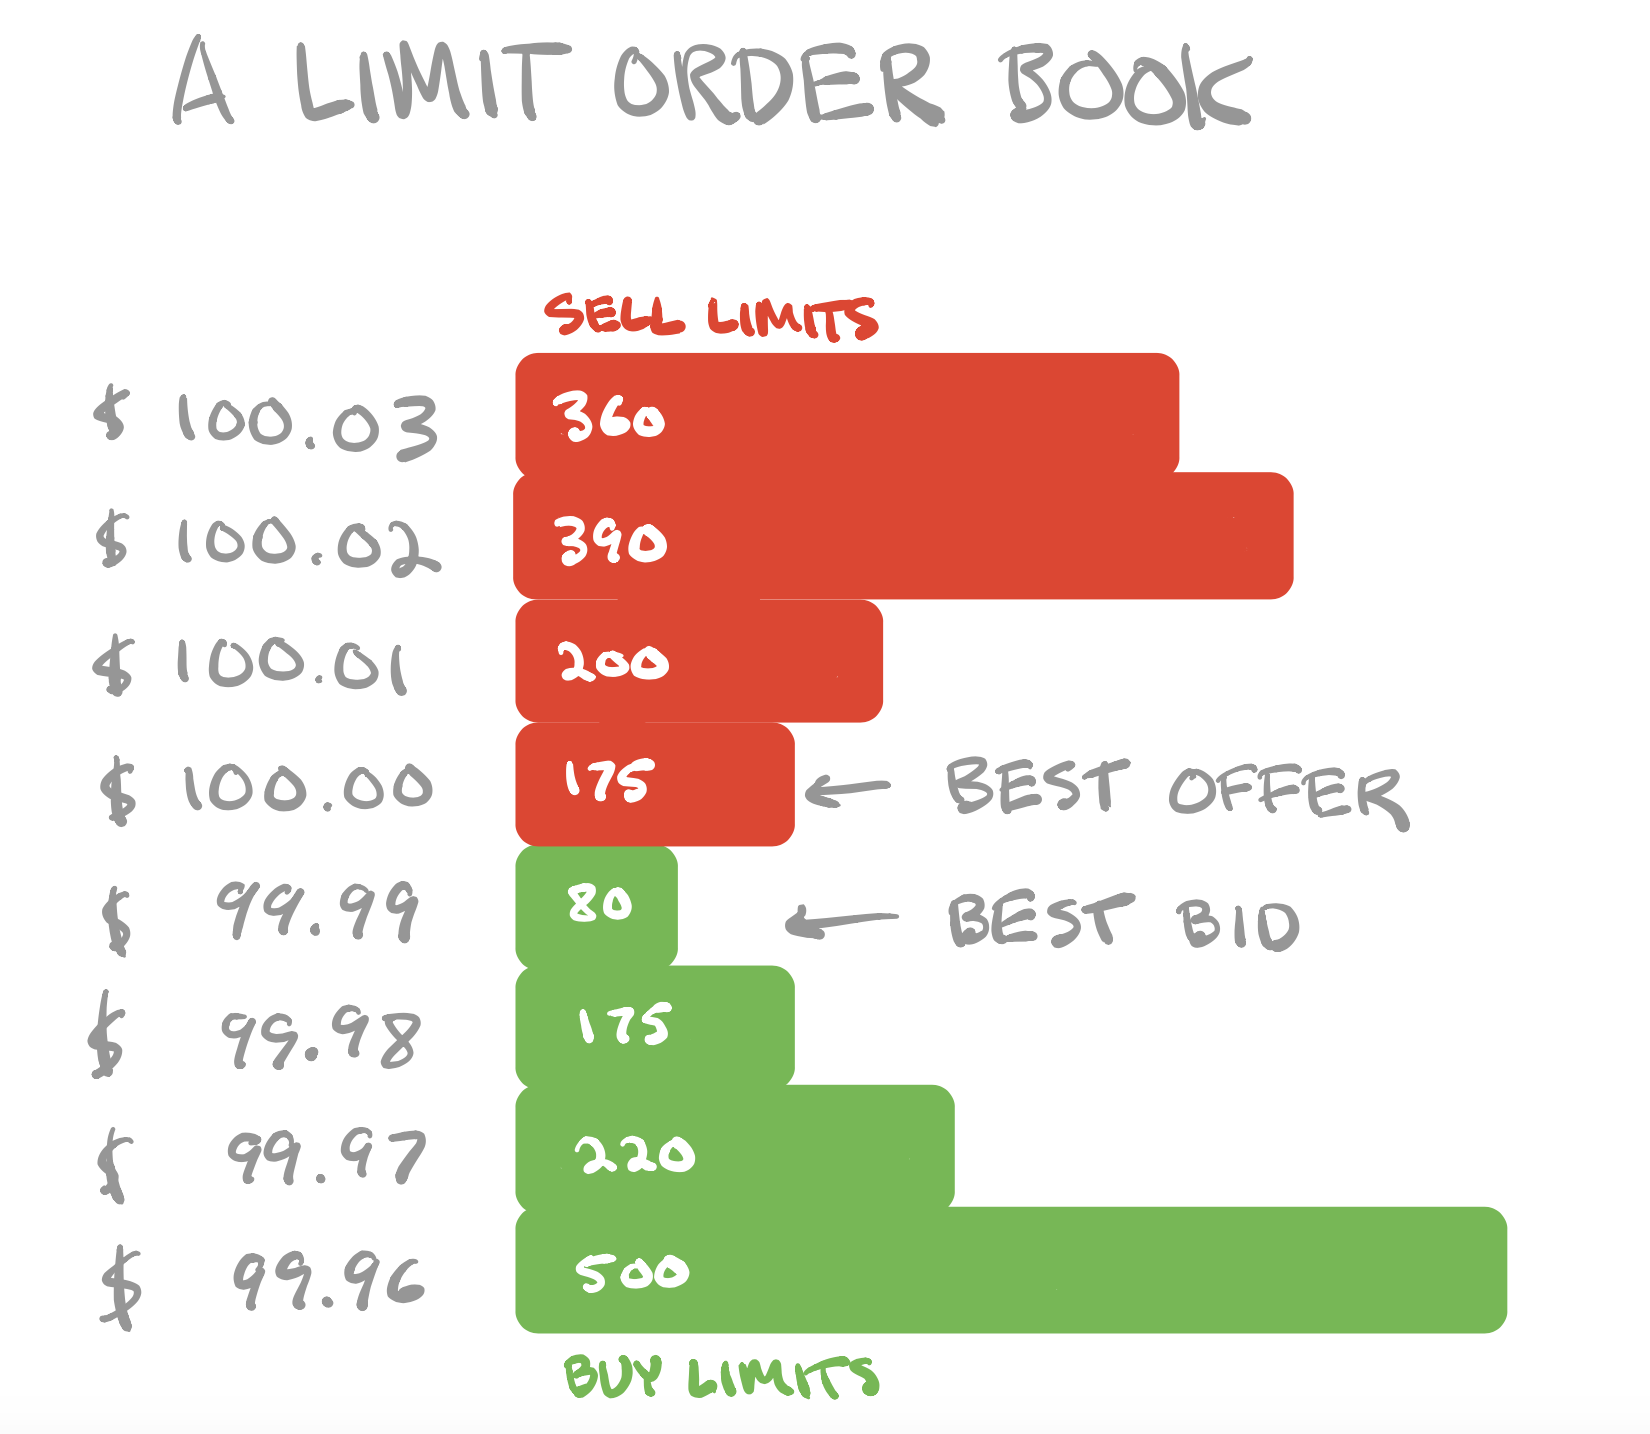 A LIMIT ORDER BOOK
SELL LIMITS
$ 100.03 360
$ 100.02 390
$ 100.01 200
$ 100.00 175 BEST OFFER
$ 99.99 80 BEST BID
$ 99.98 175
$ 99.97 220
$ 99.96 500
BUY LIMITS